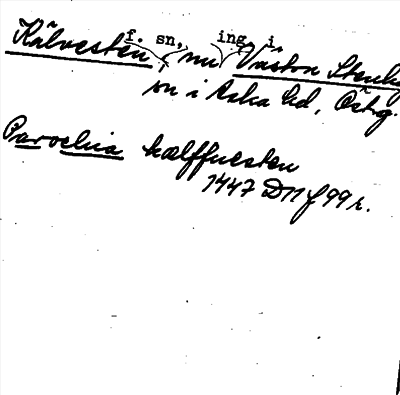 Kälvesten, f. sn, nu ing i Västra Stenby
sn i Aska hd, Östg.
Parochia kælffuesten
1447 DN f 99 r.